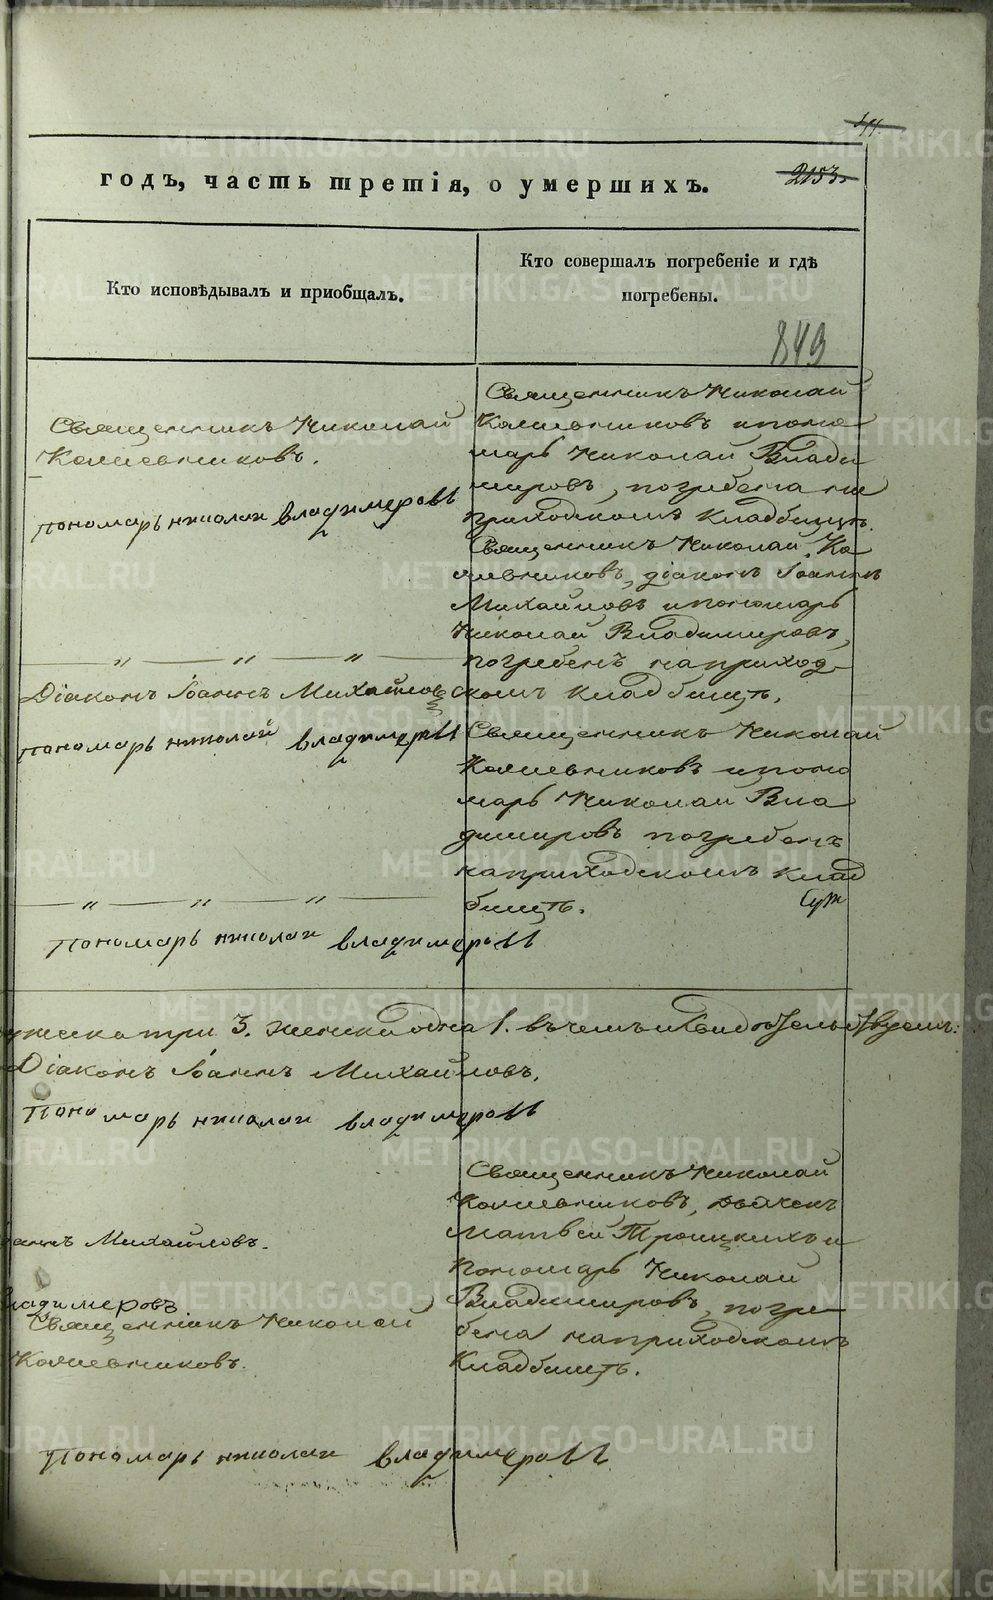 годъ, часть третія, о умершихъ.
2153.
Кто исповѣдывалъ и пріобщалъ.
Кто совершалъ погребеніе и гдѣ
погребены.
849
Священникъ Николай
Кожевниковъ.
Пономарь николаи владимеровъ
Священникъ Николай
Кожевниковъ и поно
марь Николай Влади
мировъ, погребена на
приходскомъ кладбищѣ.
Священникъ Николай Ко
жевниковъ, діаконъ Іоаннъ
Михайловъ и пономарь
Николай Владимировъ,
погребенъ на приход
скомъ кладбищѣ.
— „ — „ — „ —
Діаконъ Іоаннъ Михайловъ
пономарь николай владимеровъ
Священникъ Николай
Кожевниковъ и поно
марь Николай Вла
димировъ погребенъ
на приходскомъ клад
бищѣ.
— „ — „ — „ —
Пономарь николаи владимеровъ
ужеска три 3. женска одна 1. въ чемъ и свидѣтельствуемъ:
Діаконъ Іоаннъ Михайловъ.
Пономарь николаи владимеровъ
Священникъ Николай
Кожевниковъ, дьячекъ
Матвей Троицкихъ и
Пономарь Николай
Владимировъ, погре
бена на приходскомъ
Кладбищѣ.
аннъ Михайловъ.
владимеровъ
Священникъ Николай
Кожевниковъ.
Пономарь николаи владимеровъ
METRIKI.GASO-URAL.RU